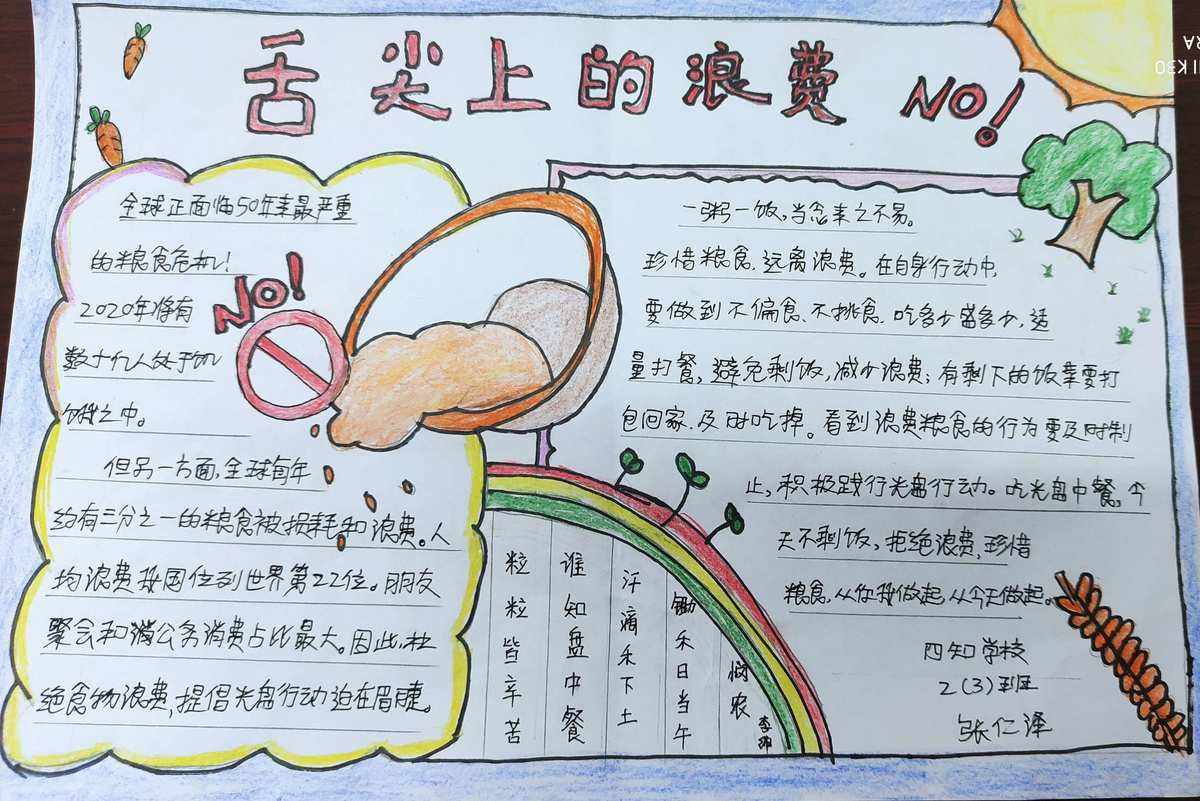 舌尖上的浪费 NO!
全球正面临50年来最严重
的粮食危机！
2020年将有
数十亿人处于饥
饿之中。
但另一方面，全球每年
约有三分之一的粮食被损耗和浪费。人
均浪费我国位列世界第22位。朋友
聚会和公务消费占比最大。因此，杜
绝食物浪费，提倡光盘行动迫在眉睫。
NO!
一粥一饭，当念来之不易。
珍惜粮食，远离浪费。在自身行动中，
要做到不偏食、不挑食，吃多少盛多少，适
量打餐，避免剩饭，减少浪费；有剩下的饭菜要打
包回家，及时吃掉。看到浪费粮食的行为要及时制
止，积极践行光盘行动。吃光盘中餐，今
天不剩饭，拒绝浪费，珍惜
粮食，从你我做起，从今天做起。
悯农
李绅
锄禾日当午
汗滴禾下土
谁知盘中餐
粒粒皆辛苦
四知学校
2(3)班
张仁泽